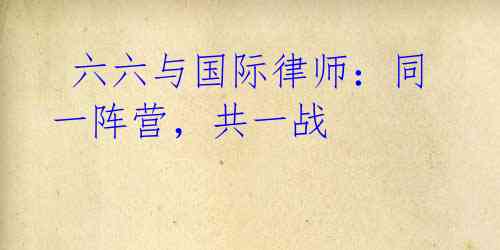 六六与国际律师：同
一阵营，共一战